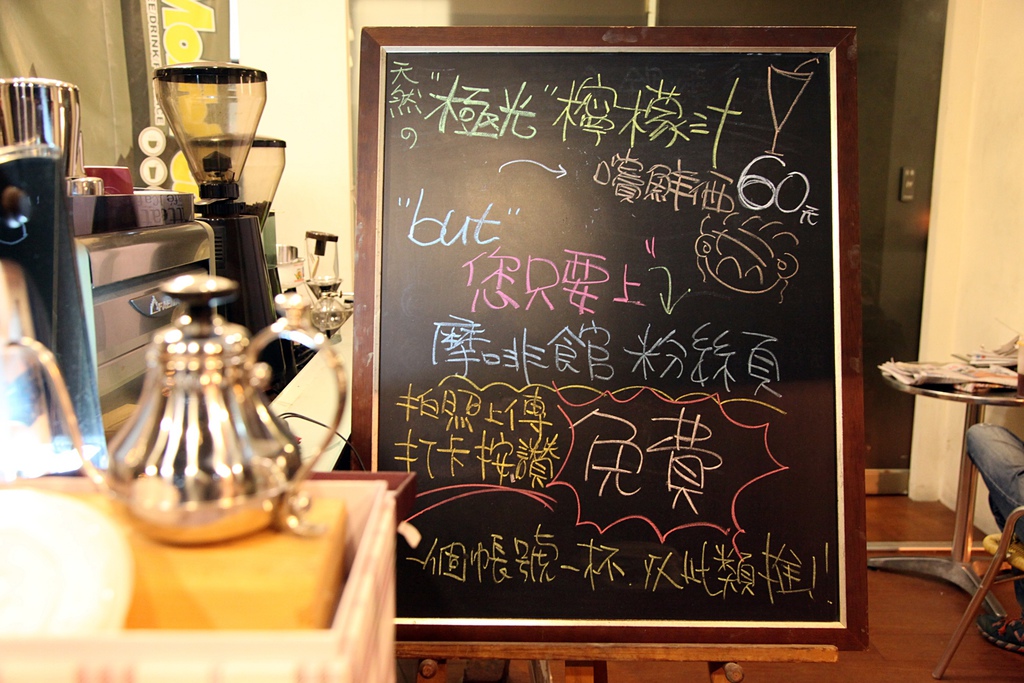 天然の"極光"檸檬汁
嚐鮮價60元
"but"
您只要上"
摩啡館 粉絲頁
拍照上傳
打卡按讚
免費
一個帳號一杯.以此類推!!